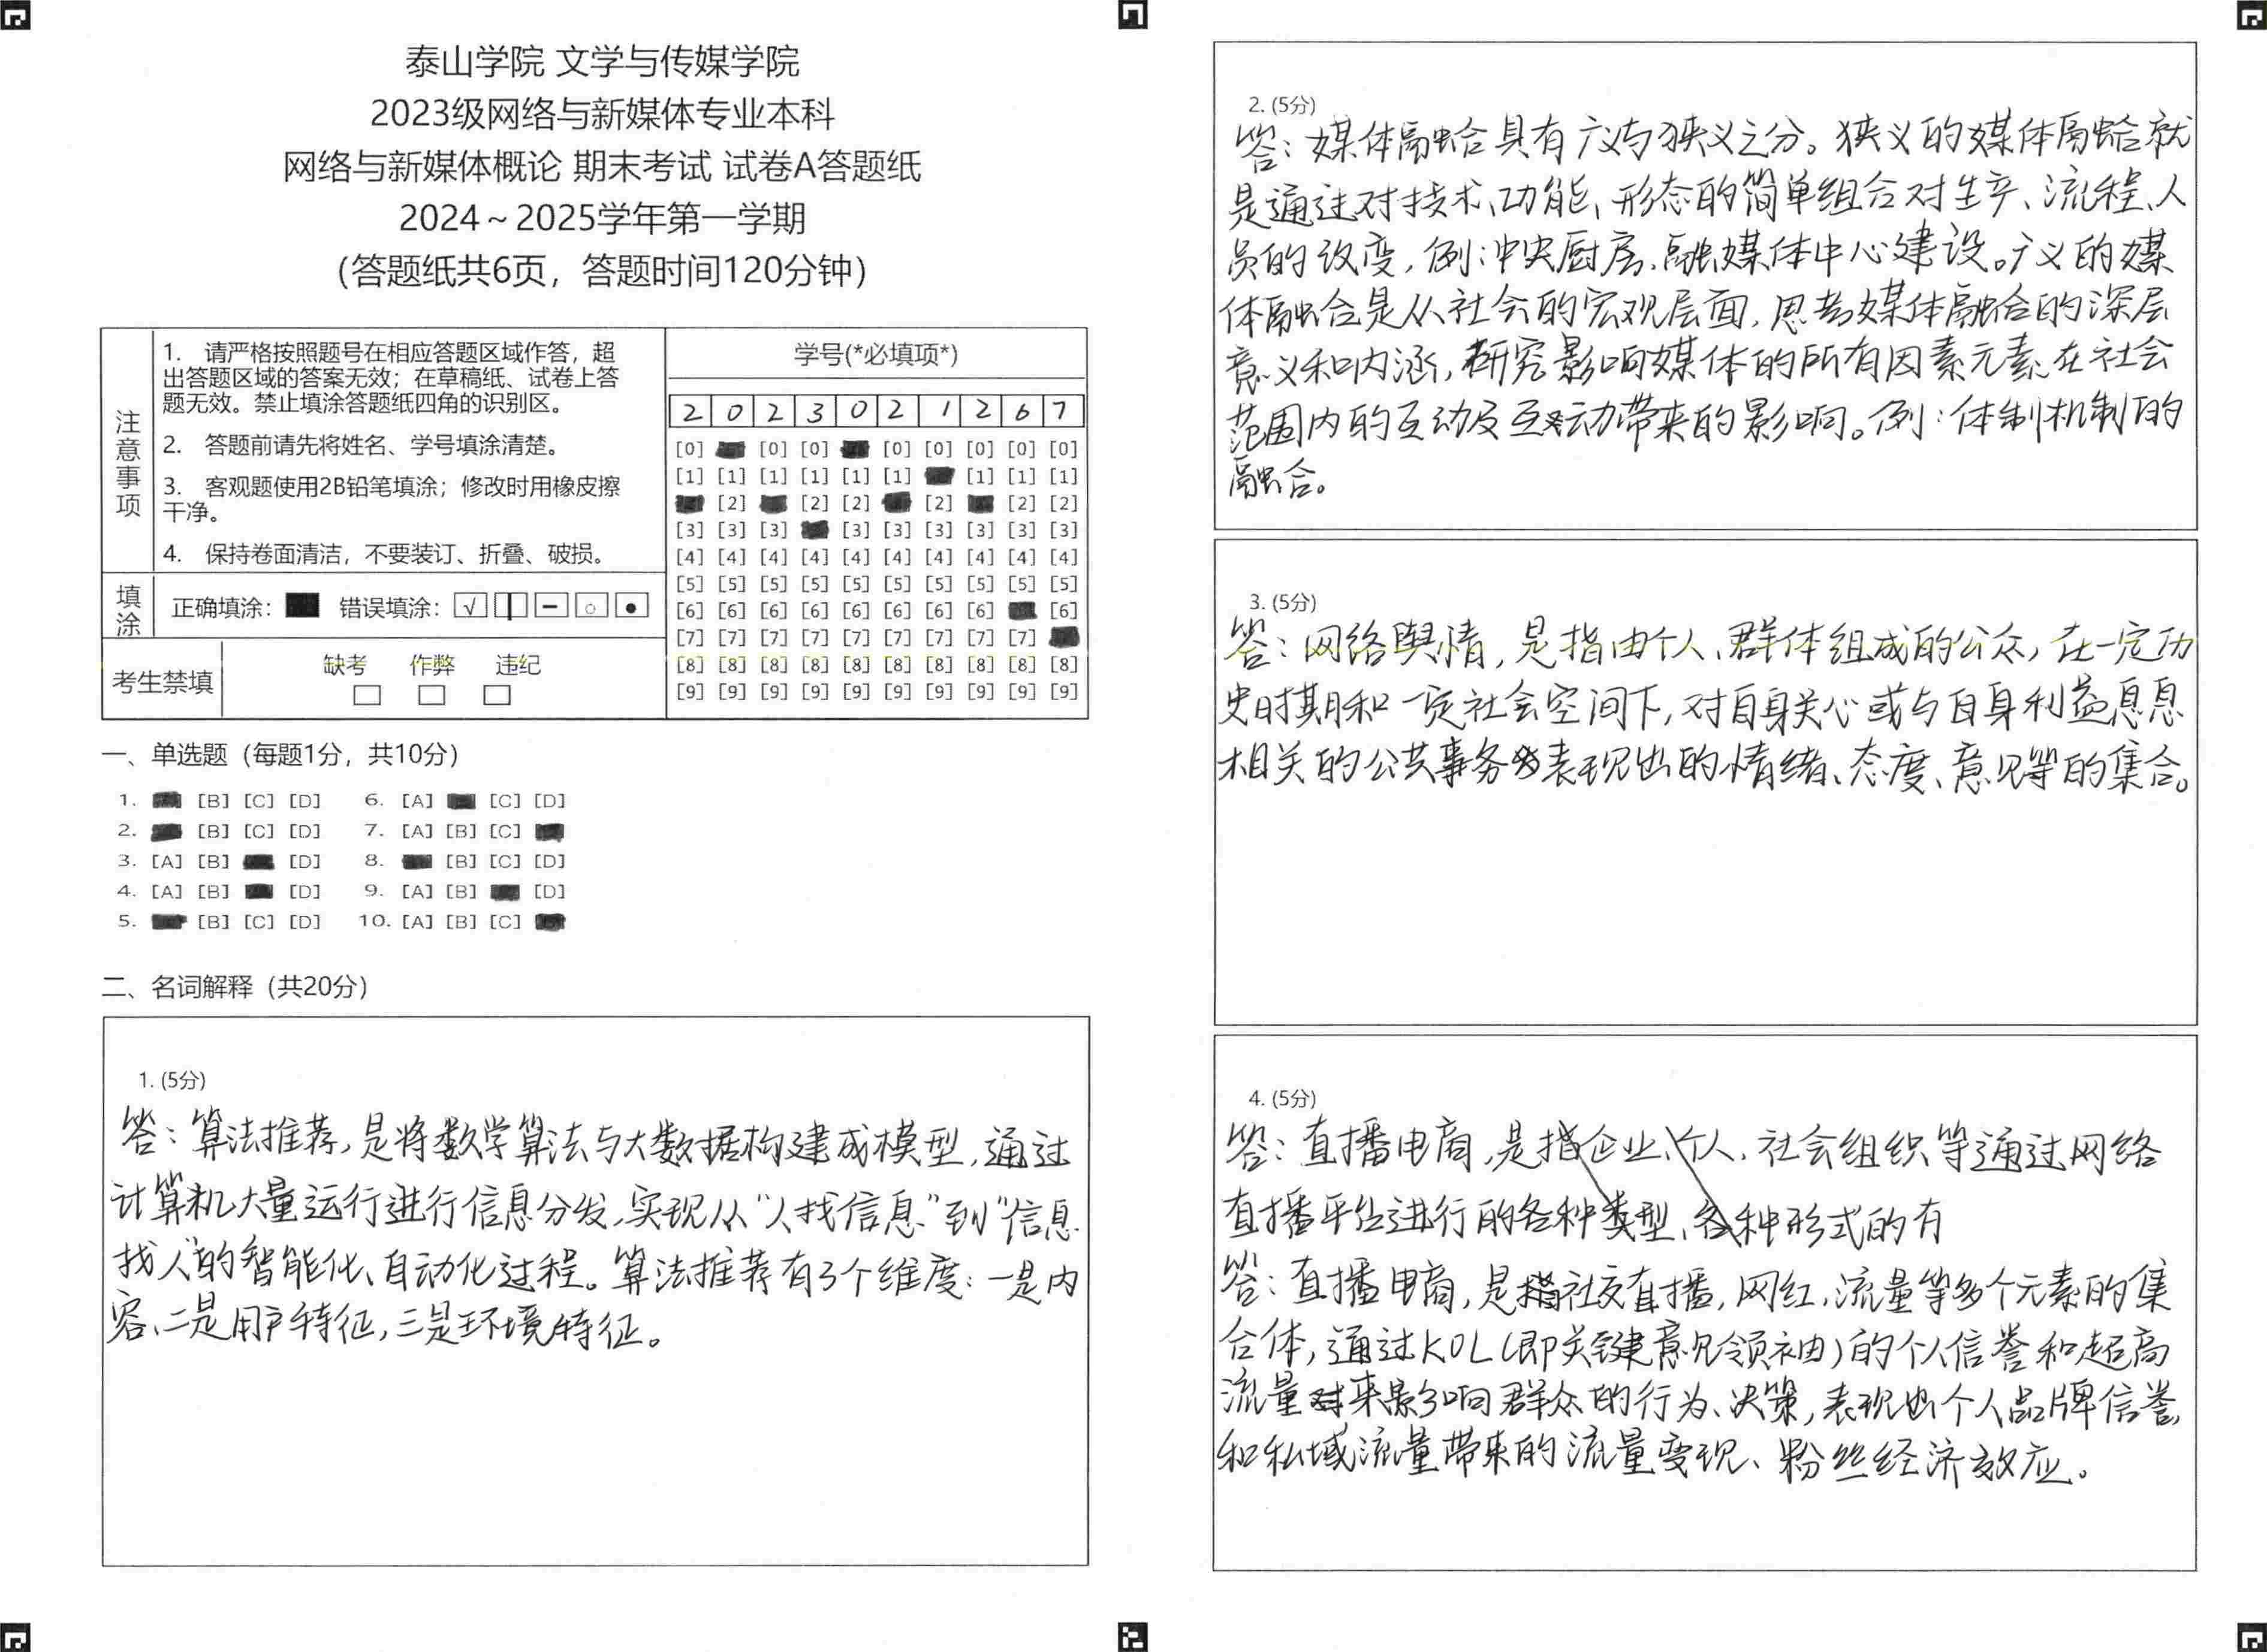 泰山学院 文学与传媒学院
2023级网络与新媒体专业本科
网络与新媒体概论 期末考试 试卷A答题纸
2024～2025学年第一学期
（答题纸共6页，答题时间120分钟）
注意事项
1. 请严格按照题号在相应答题区域作答，超
出答题区域的答案无效；在草稿纸、试卷上答
题无效。禁止填涂答题纸四角的识别区。
2. 答题前请先将姓名、学号填涂清楚。
3. 客观题使用2B铅笔填涂；修改时用橡皮擦
干净。
4. 保持卷面清洁，不要装订、折叠、破损。
填涂
正确填涂： 错误填涂：
考生禁填
缺考 作弊 违纪
学号(*必填项*)
2 0 2 3 0 2 1 2 6 7
[0] [0] [0] [0] [0] [0] [0] [0]
[1] [1] [1] [1] [1] [1] [1] [1] [1]
[2] [2] [2] [2] [2] [2]
[3] [3] [3] [3] [3] [3] [3] [3] [3]
[4] [4] [4] [4] [4] [4] [4] [4] [4] [4]
[5] [5] [5] [5] [5] [5] [5] [5] [5] [5]
[6] [6] [6] [6] [6] [6] [6] [6] [6]
[7] [7] [7] [7] [7] [7] [7] [7] [7]
[8] [8] [8] [8] [8] [8] [8] [8] [8] [8]
[9] [9] [9] [9] [9] [9] [9] [9] [9] [9]
一、单选题（每题1分，共10分）
1. [B] [C] [D] 6. [A] [C] [D]
2. [B] [C] [D] 7. [A] [B] [C]
3. [A] [B] [D] 8. [B] [C] [D]
4. [A] [B] [D] 9. [A] [B] [D]
5. [B] [C] [D] 10. [A] [B] [C]
二、名词解释（共20分）
1. (5分)
答：算法推荐，是将数学算法与大数据构建成模型，通过
计算机大量运行进行信息分发，实现从“人找信息”到“信息
找人”的智能化、自动化过程。算法推荐有3个维度：一是内
容、二是用户特征，三是环境特征。
2. (5分)
答：媒体融合具有广义与狭义之分。狭义的媒体融合就
是通过对技术、功能、形态的简单组合对生产、流程、人
员的改变，例：中央厨房、融媒体中心建设。广义的媒
体融合是从社会的宏观层面，思考媒体融合的深层
意义和内涵，研究影响媒体的所有因素元素在社会
范围内的互动及互动带来的影响。例：体制机制的
融合。
3. (5分)
答：网络舆情，是指由个人、群体组成的公众，在一定历
史时期和一定社会空间下，对自身关心或与自身利益息息
相关的公共事务表现出的情绪、态度、意见等的集合。
4. (5分)
答：直播电商，是指企业、个人、社会组织等通过网络
直播平台进行的各种类型、各种形式的有
答：直播电商，是指社交直播，网红，流量等多个元素的集
合体，通过KOL（即关键意见领袖）的个人信誉和超高
流量来影响群众的行为、决策，表现出个人品牌信誉
和私域流量带来的流量变现、粉丝经济效应。